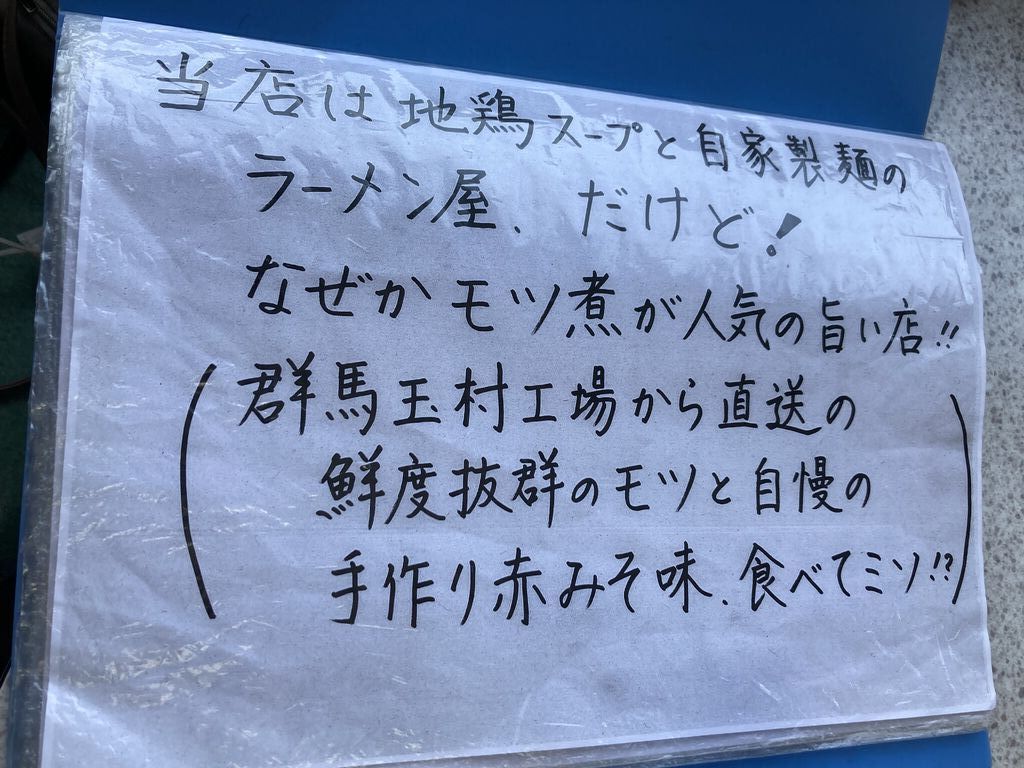 当店は地鶏スープと自家製麺の
ラーメン屋、だけど!
なぜかモツ煮が人気の旨い店!!
(群馬玉村工場から直送の
鮮度抜群のモツと自慢の
手作り赤みそ味、食べてミソ!?)